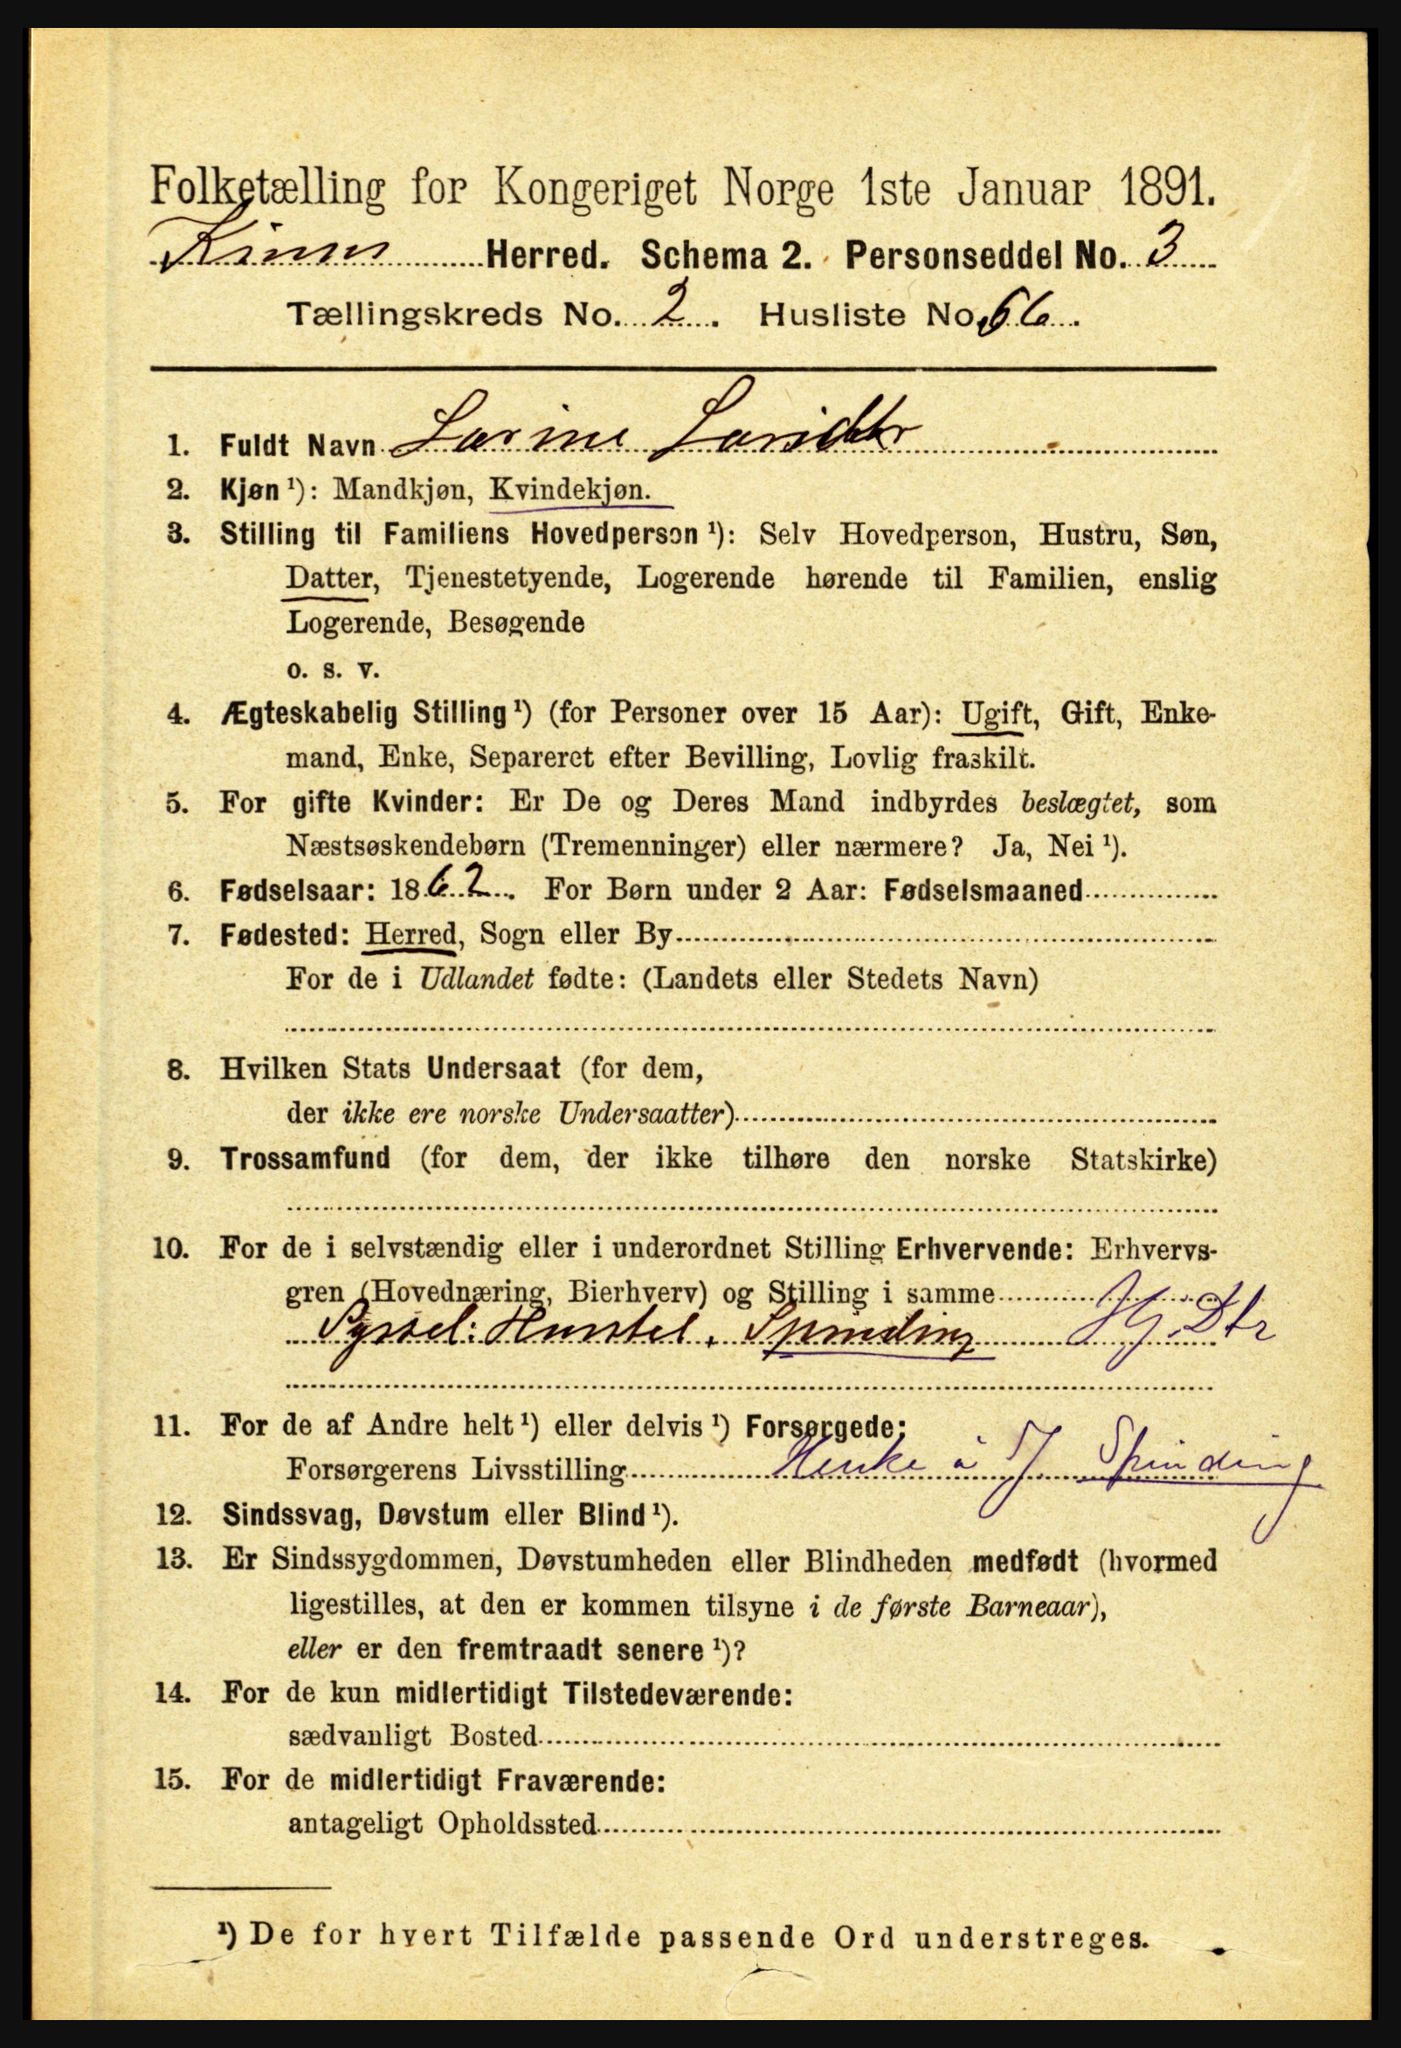 Folketælling for Kongeriget Norge 1ste Januar 1891.
Kinn Herred. Schema 2. Personseddel No. 3
Tællingskreds No. 2. Husliste No. 66.
1. Fuldt Navn Larine Larsdtr
2. Kjøn ¹): Mandkjøn, Kvindekjøn.
3. Stilling til Familiens Hovedperson ¹): Selv Hovedperson, Hustru, Søn,
Datter, Tjenestetyende, Logerende hørende til Familien, enslig
Logerende, Besøgende
o. s. v.
4. Ægteskabelig Stilling ¹) (for Personer over 15 Aar): Ugift, Gift, Enke-
mand, Enke, Separeret efter Bevilling, Lovlig fraskilt.
5. For gifte Kvinder: Er De og Deres Mand indbyrdes beslægtet, som
Næstsøskendebørn (Tremenninger) eller nærmere? Ja, Nei ¹).
6. Fødselsaar: 1862. For Børn under 2 Aar: Fødselsmaaned
7. Fødested: Herred, Sogn eller By
For de i Udlandet fødte: (Landets eller Stedets Navn)
8. Hvilken Stats Undersaat (for dem,
der ikke ere norske Undersaatter)
9. Trossamfund (for dem, der ikke tilhøre den norske Statskirke)
10. For de i selvstændig eller i underordnet Stilling Erhvervende: Erhvervs-
gren (Hovednæring, Bierhverv) og Stilling i samme
Syssel: Hunstel. Spinding Hj. Dtr
11. For de af Andre helt ¹) eller delvis ¹) Forsørgede:
Forsørgerens Livsstilling Spinding
12. Sindssvag, Døvstum eller Blind ¹).
13. Er Sindssygdommen, Døvstumheden eller Blindheden medfødt (hvormed
ligestilles, at den er kommen tilsyne i de første Barneaar),
eller er den fremtraadt senere ¹)?
14. For de kun midlertidigt Tilstedeværende:
sædvanligt Bosted
15. For de midlertidigt Fraværende:
antageligt Opholdssted
¹) De for hvert Tilfælde passende Ord understreges.